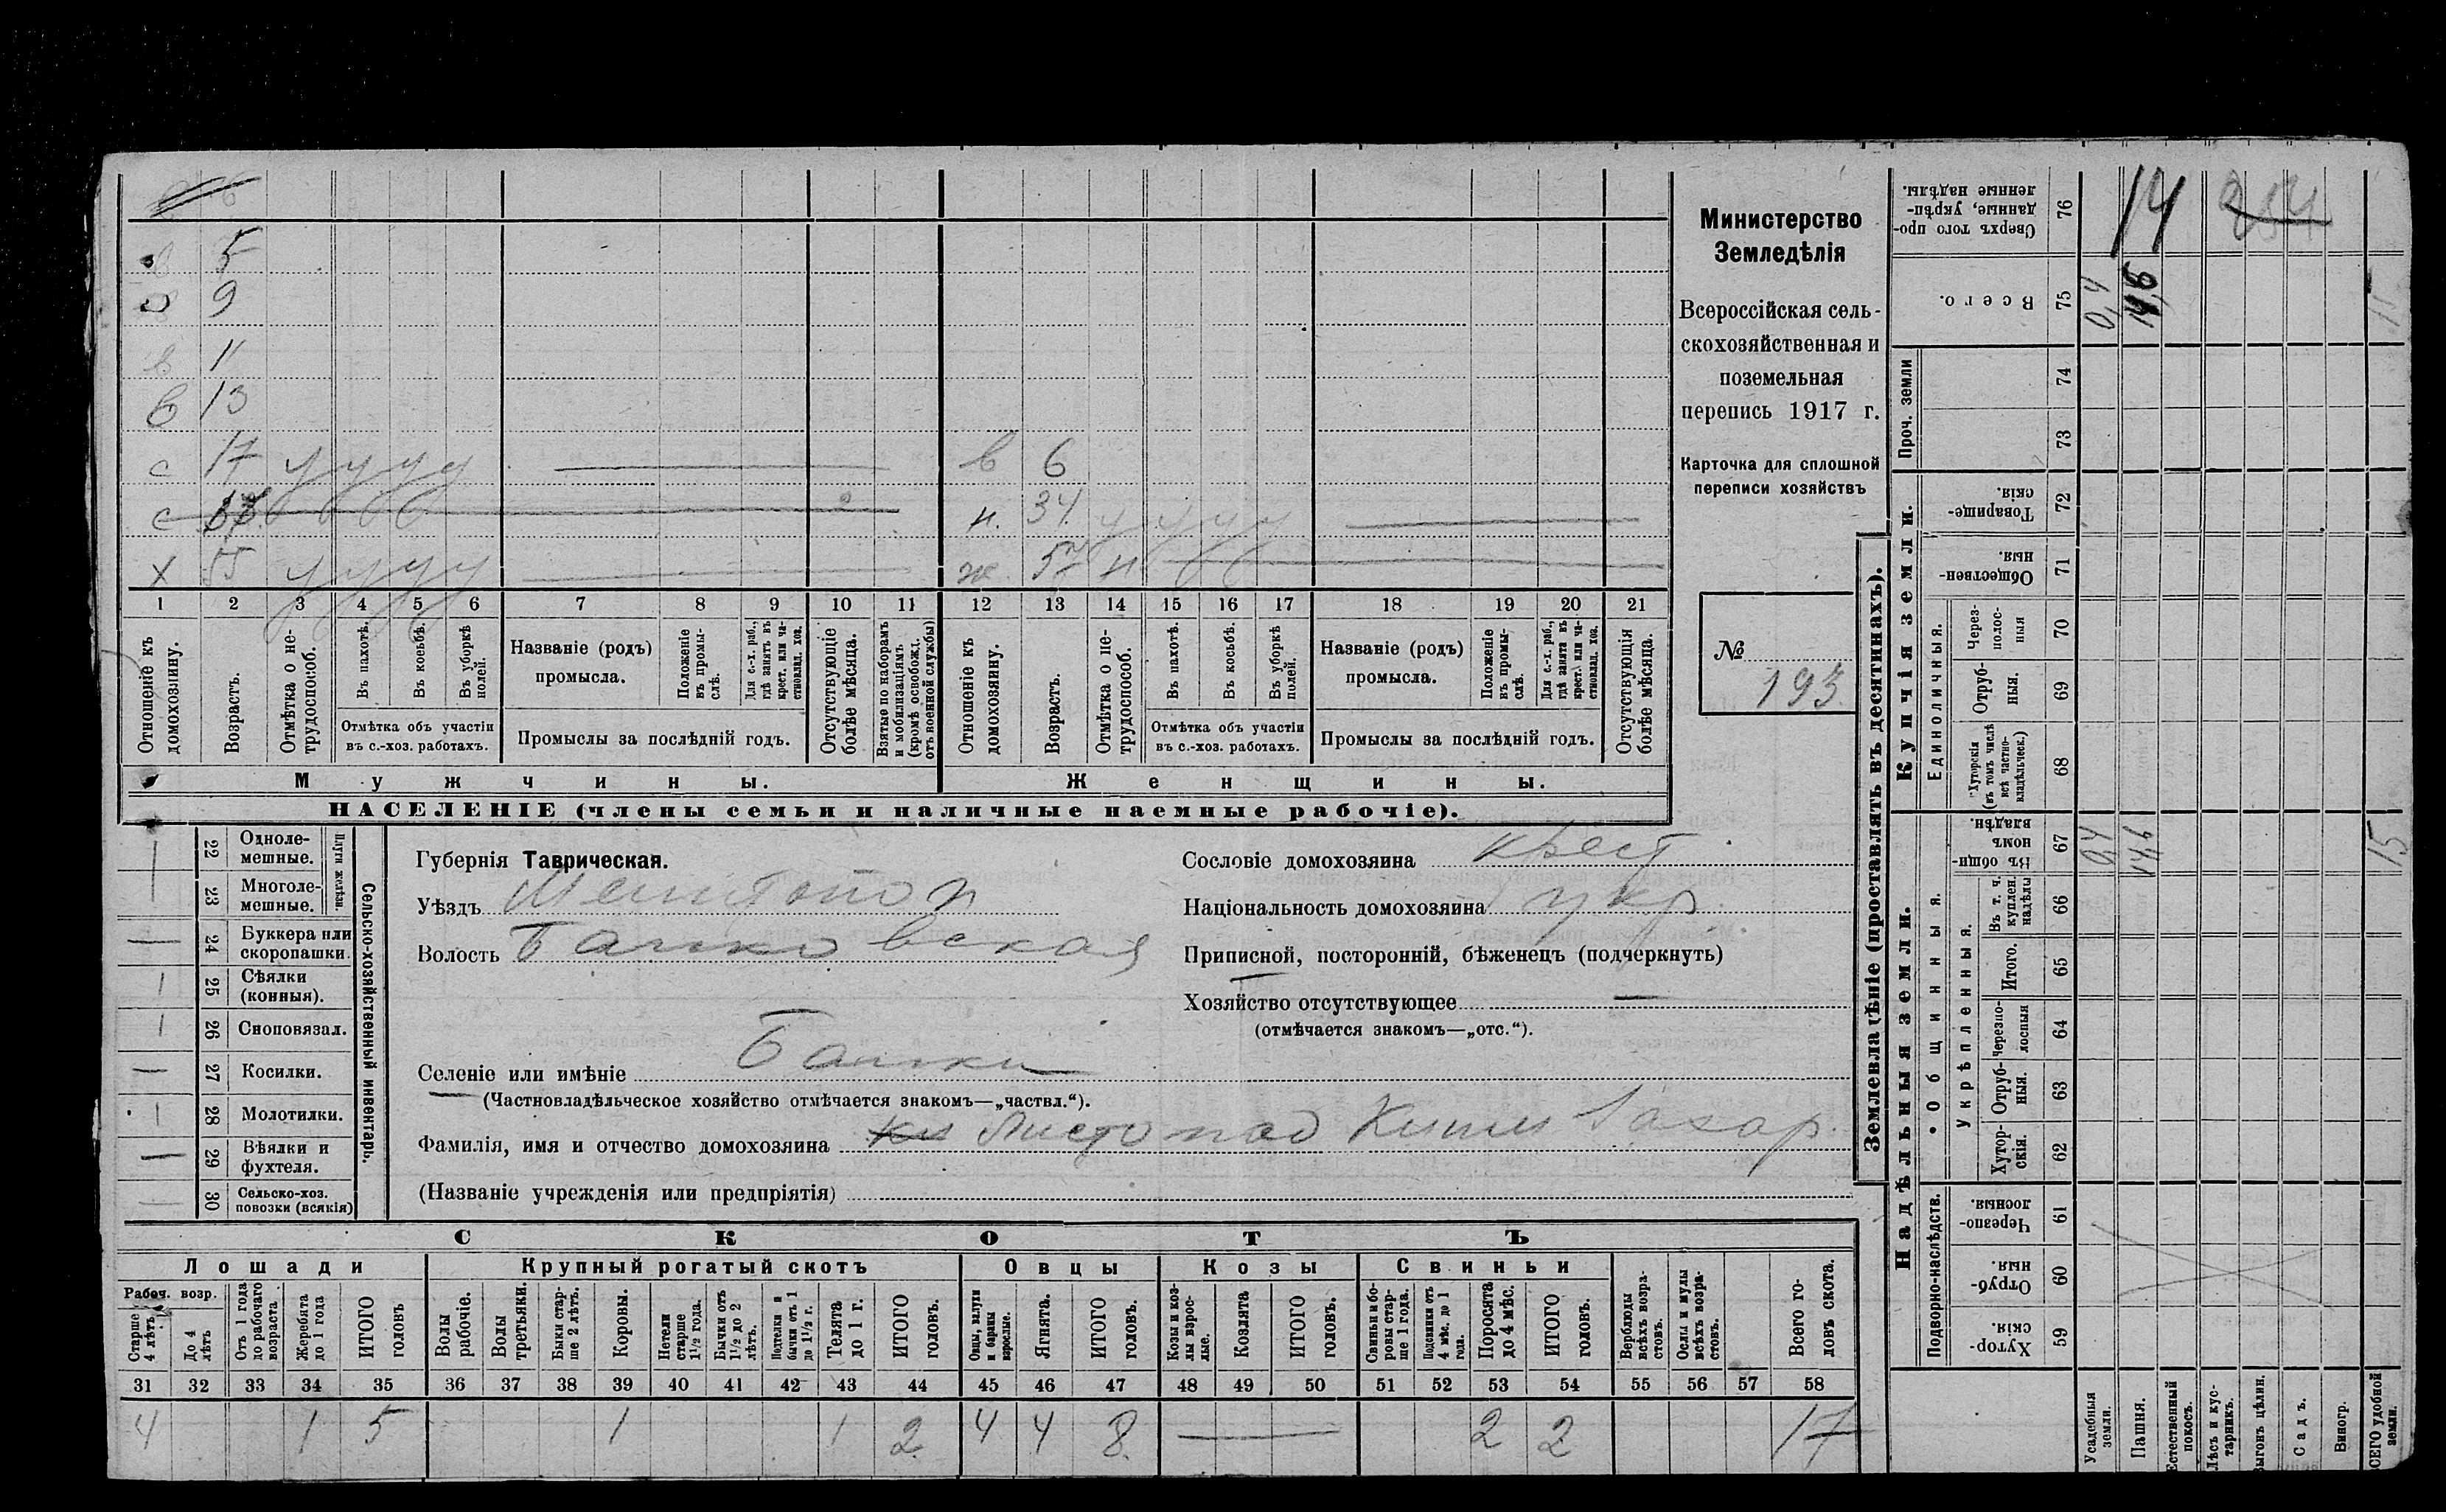 5
9
в 11
в 13
с 17 у у у у
в 6
с
н. 34 у у у у
х 55 у у у у
ж. 57 н
1 2 3 4 5 6 7 8 9 10 11 12 13 14 15 16 17 18 19 20 21
Отношеніе къ домохозяину.
Возрастъ.
Отмѣтка о не-
трудоспособ.
Въ пахотѣ.
Въ косьбѣ.
Въ уборкѣ полей.
Отмѣтка объ участіи
въ с.-хоз. работахъ.
Названіе (родъ)
промысла.
Положеніе
въ промы-
слѣ.
Для с.-х. раб.,
гдѣ занятъ въ
крест. или ча-
стновлад. хоз.
Промыслы за послѣдній годъ.
Отсутствующіе
болѣе мѣсяца.
Взятые по наборамъ
и мобилизаціямъ
(кромѣ освобожд.
отъ военной службы)
Отношеніе къ
домохозяину.
Возрастъ.
Отмѣтка о не-
трудоспособ.
Въ пахотѣ.
Въ косьбѣ.
Въ уборкѣ
полей.
Отмѣтка объ участіи
въ с.-хоз. работахъ.
Названіе (родъ)
промысла.
Положеніе
въ промы-
слѣ.
Для с.-х. раб.,
гдѣ занята въ
крест. или ча-
стновлад. хоз.
Промыслы за послѣдній годъ.
Отсутствующія
болѣе мѣсяца.
Мужчины.
Женщины.
НАСЕЛЕНІЕ (члены семьи и наличные наемные рабочіе).
Министерство
Земледѣлія
Всероссійская сель-
скохозяйственная и
поземельная
перепись 1917 г.
Карточка для сплошной
переписи хозяйствъ
№
193
Сельско-хозяйственный инвентарь.
Плуги желѣзн.
22 Одноле-
мешные.
23 Многоле-
мешные.
24 Буккера или
скоропашки.
1 25 Сѣялки
(конныя).
1 26 Сноповязал.
27 Косилки.
1 28 Молотилки.
29 Вѣялки и
фухтеля.
30 Сельско-хоз.
повозки (всякія)
Губернія Таврическая.
Уѣздъ Мелитопол
Волость Балковская
Селеніе или имѣніе Балки
(Частновладѣльческое хозяйство отмѣчается знакомъ—„частвл.“).
Фамилія, имя и отчество домохозяина Листопад Захар.
(Названіе учрежденія или предпріятія)
Сословіе домохозяина крест
Національность домохозяина укр.
Приписной, посторонній, бѣженецъ (подчеркнуть)
Хозяйство отсутствующее —
(отмѣчается знакомъ—„отс.“).
СКОТЪ
Лошади Крупный рогатый скотъ Овцы Козы Свиньи
Рабоч. возр.
Старше
4 лѣтъ
До 4
лѣтъ
Отъ 1 года
до рабочаго
возраста
Жеребята
до 1 года
ИТОГО
головъ
Волы
рабочіе.
Волы
третьяки.
Быки стар-
ше 2 лѣтъ.
Коровы.
Нетели
старше
1½ года.
Бычки отъ
1½ до 2
лѣтъ.
Подтелки и
бычки отъ 1
до 1½ г.
Телята
до 1 г.
ИТОГО
головъ.
Овцы, валухи
и бараны
взрослые.
Ягнята.
ИТОГО
головъ.
Козы и коз-
лы взрос-
лые.
Козлята
ИТОГО
головъ.
Свиньи и бо-
ровы стар-
ше 1 года.
Подсвинки отъ
4 мѣс. до 1
года.
Поросята
до 4 мѣс.
ИТОГО
головъ.
Верблюды
всѣхъ возра-
стовъ.
Ослы и мулы
всѣхъ возра-
стовъ.
Всего го-
ловъ скота.
31 32 33 34 35 36 37 38 39 40 41 42 43 44 45 46 47 48 49 50 51 52 53 54 55 56 57 58
4 1 5 1 1 2 4 4 8 — 2 2 17
Землевладѣніе (проставлять въ десятинахъ).
Купчія земли.
Надѣльныя земли.
Сверхъ того про-
данные, укрѣп-
ленные надѣлы.
76
14
254
Всего.
75
0,4
14,6
Проч. земли
74
73
Товарище-
скія.
72
Обществен-
ныя.
71
Единоличныя.
Через-
полос-
ныя
70
Отруб-
ныя.
69
Хуторскія
(въ томъ числѣ
всѣ частно-
владѣльческ.)
68
Общинныя.
Въ общин-
номъ
владѣн.
67
0,4
14,6
15
Укрѣпленныя.
Въ т. ч.
куплен.
надѣлы
66
Итого.
65
Черезпо-
лосныя
64
Отруб-
ныя.
63
Хутор-
скія.
62
Подворно-наслѣдств.
Черезпо-
лосныя
61
Отруб-
ныя.
60
Хутор-
скія.
59
Усадебныя
земли.
Пашня.
Естественный
покосъ.
Лѣсъ и кус-
тарникъ.
Выгонъ цѣлин.
Садъ.
Виногр.
ВСЕГО удобной
земли.